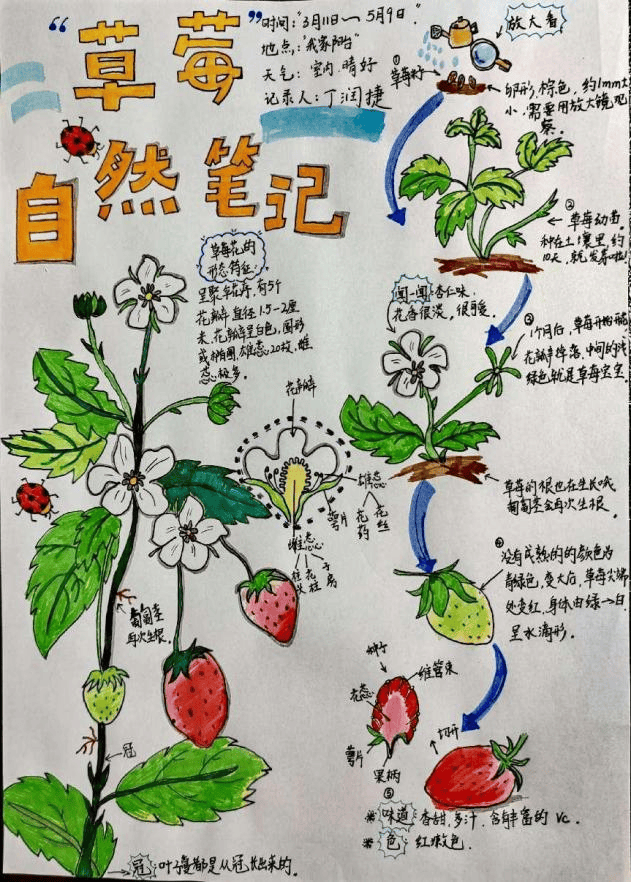 “草莓”
自然笔记
时间:“3月11日～5月9日。”
地点:“我家阳台”
天气:室内.晴好
记录人:丁润捷
放大看
①
草莓籽
卵形,棕色,约1mm大
小,需要用放大镜观
察。
②草莓幼苗。
种在土壤里,约
10天,就发芽啦!
草莓花的
形态特征:
呈聚伞花序,有5个
花瓣,直径1.5-2厘
米,花瓣呈白色,圆形
或椭圆,雄蕊20枚,雌
蕊极多。
闻一闻:杏仁味.
花香很淡,很好
③
1个月后,草莓开始
花瓣掉落,中间的浅
绿色就是草莓宝宝
花瓣
雄蕊
花药
花丝
萼片
雌蕊
柱头
花柱
子房
草莓的根也在生长哦
匍匐茎会再次生根。
④没有成熟的的颜色为
青绿色,变大后,草莓尖端
处变红,身体由绿→白
呈水滴形。
匍匐茎
再次生根。
种子
维管束
花蕊
萼片
果柄
切开
冠
⑤
※味道:香甜,多汁,含有丰富的Vc.
※色:红嫩色.
冠:叶子蔓都是从冠长出来的。